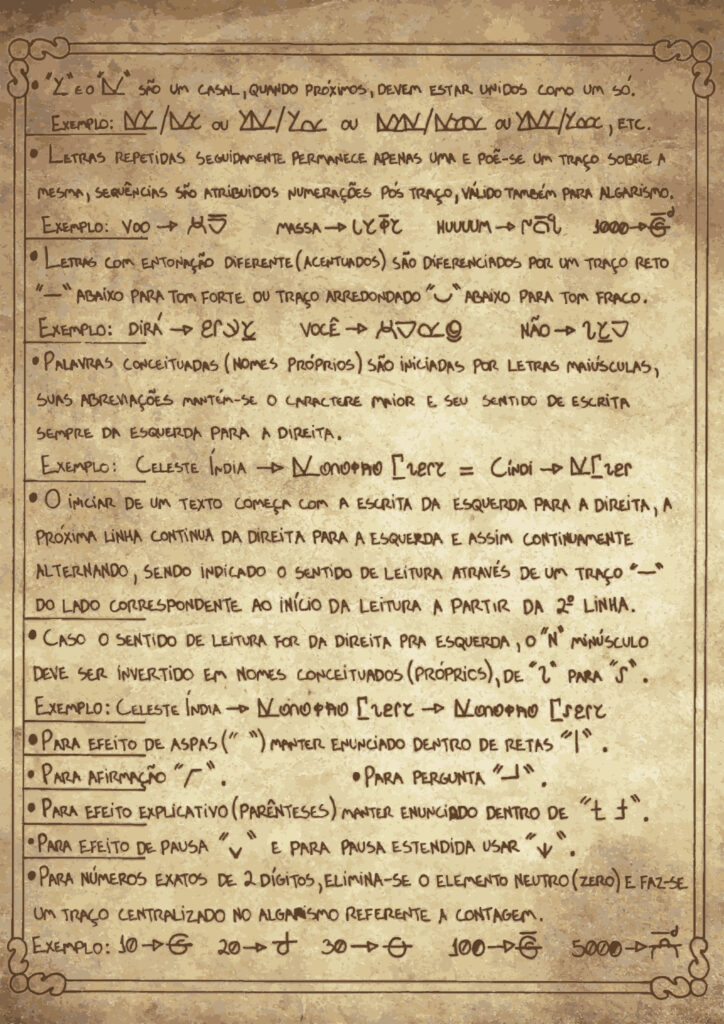 • " " E O " " SÃO UM CASAL, QUANDO PRÓXIMOS, DEVEM ESTAR UNIDOS COMO UM SÓ.
EXEMPLO: / OU / OU / OU / , ETC.
• LETRAS REPETIDAS SEGUIDAMENTE PERMANECE APENAS UMA E POÊ-SE UM TRAÇO SOBRE A
MESMA, SEQUÊNCIAS SÃO ATRIBUIDOS NUMERAÇÕES PÓS TRAÇO, VÁLIDO TAMBÉM PARA ALGARISMO.
EXEMPLO: VOO → MASSA → HUUUUM → 1000 →
• LETRAS COM ENTONAÇÃO DIFERENTE (ACENTUADOS) SÃO DIFERENCIADOS POR UM TRAÇO RETO
"—" ABAIXO PARA TOM FORTE OU TRAÇO ARREDONDADO "◡" ABAIXO PARA TOM FRACO.
EXEMPLO: DIRÁ → VOCÊ → NÃO →
• PALAVRAS CONCEITUADAS (NOMES PRÓPRIOS) SÃO INICIADAS POR LETRAS MAIÚSCULAS,
SUAS ABREVIAÇÕES MANTÉM-SE O CARACTERE MAIOR E SEU SENTIDO DE ESCRITA
SEMPRE DA ESQUERDA PARA A DIREITA.
EXEMPLO: CELESTE ÍNDIA → = CÍNDI →
• O INICIAR DE UM TEXTO COMEÇA COM A ESCRITA DA ESQUERDA PARA A DIREITA, A
PRÓXIMA LINHA CONTINUA DA DIREITA PARA A ESQUERDA E ASSIM CONTINUAMENTE
ALTERNANDO, SENDO INDICADO O SENTIDO DE LEITURA ATRAVÉS DE UM TRAÇO "—"
DO LADO CORRESPONDENTE AO INÍCIO DA LEITURA A PARTIR DA 2º LINHA.
• CASO O SENTIDO DE LEITURA FOR DA DIREITA PRA ESQUERDA, O "N" MINÚSCULO
DEVE SER INVERTIDO EM NOMES CONCEITUADOS (PRÓPRIOS), DE " " PARA " ".
EXEMPLO: CELESTE ÍNDIA → →
• PARA EFEITO DE ASPAS (" ") MANTER ENUNCIADO DENTRO DE RETAS "|".
• PARA AFIRMAÇÃO " ". • PARA PERGUNTA " ".
• PARA EFEITO EXPLICATIVO (PARÊNTESES) MANTER ENUNCIADO DENTRO DE " ".
• PARA EFEITO DE PAUSA " " E PARA PAUSA ESTENDIDA USAR " ".
• PARA NÚMEROS EXATOS DE 2 DÍGITOS, ELIMINA-SE O ELEMENTO NEUTRO (ZERO) E FAZ-SE
UM TRAÇO CENTRALIZADO NO ALGARISMO REFERENTE A CONTAGEM.
EXEMPLO: 10 → 20 → 30 → 100 → 5000 →